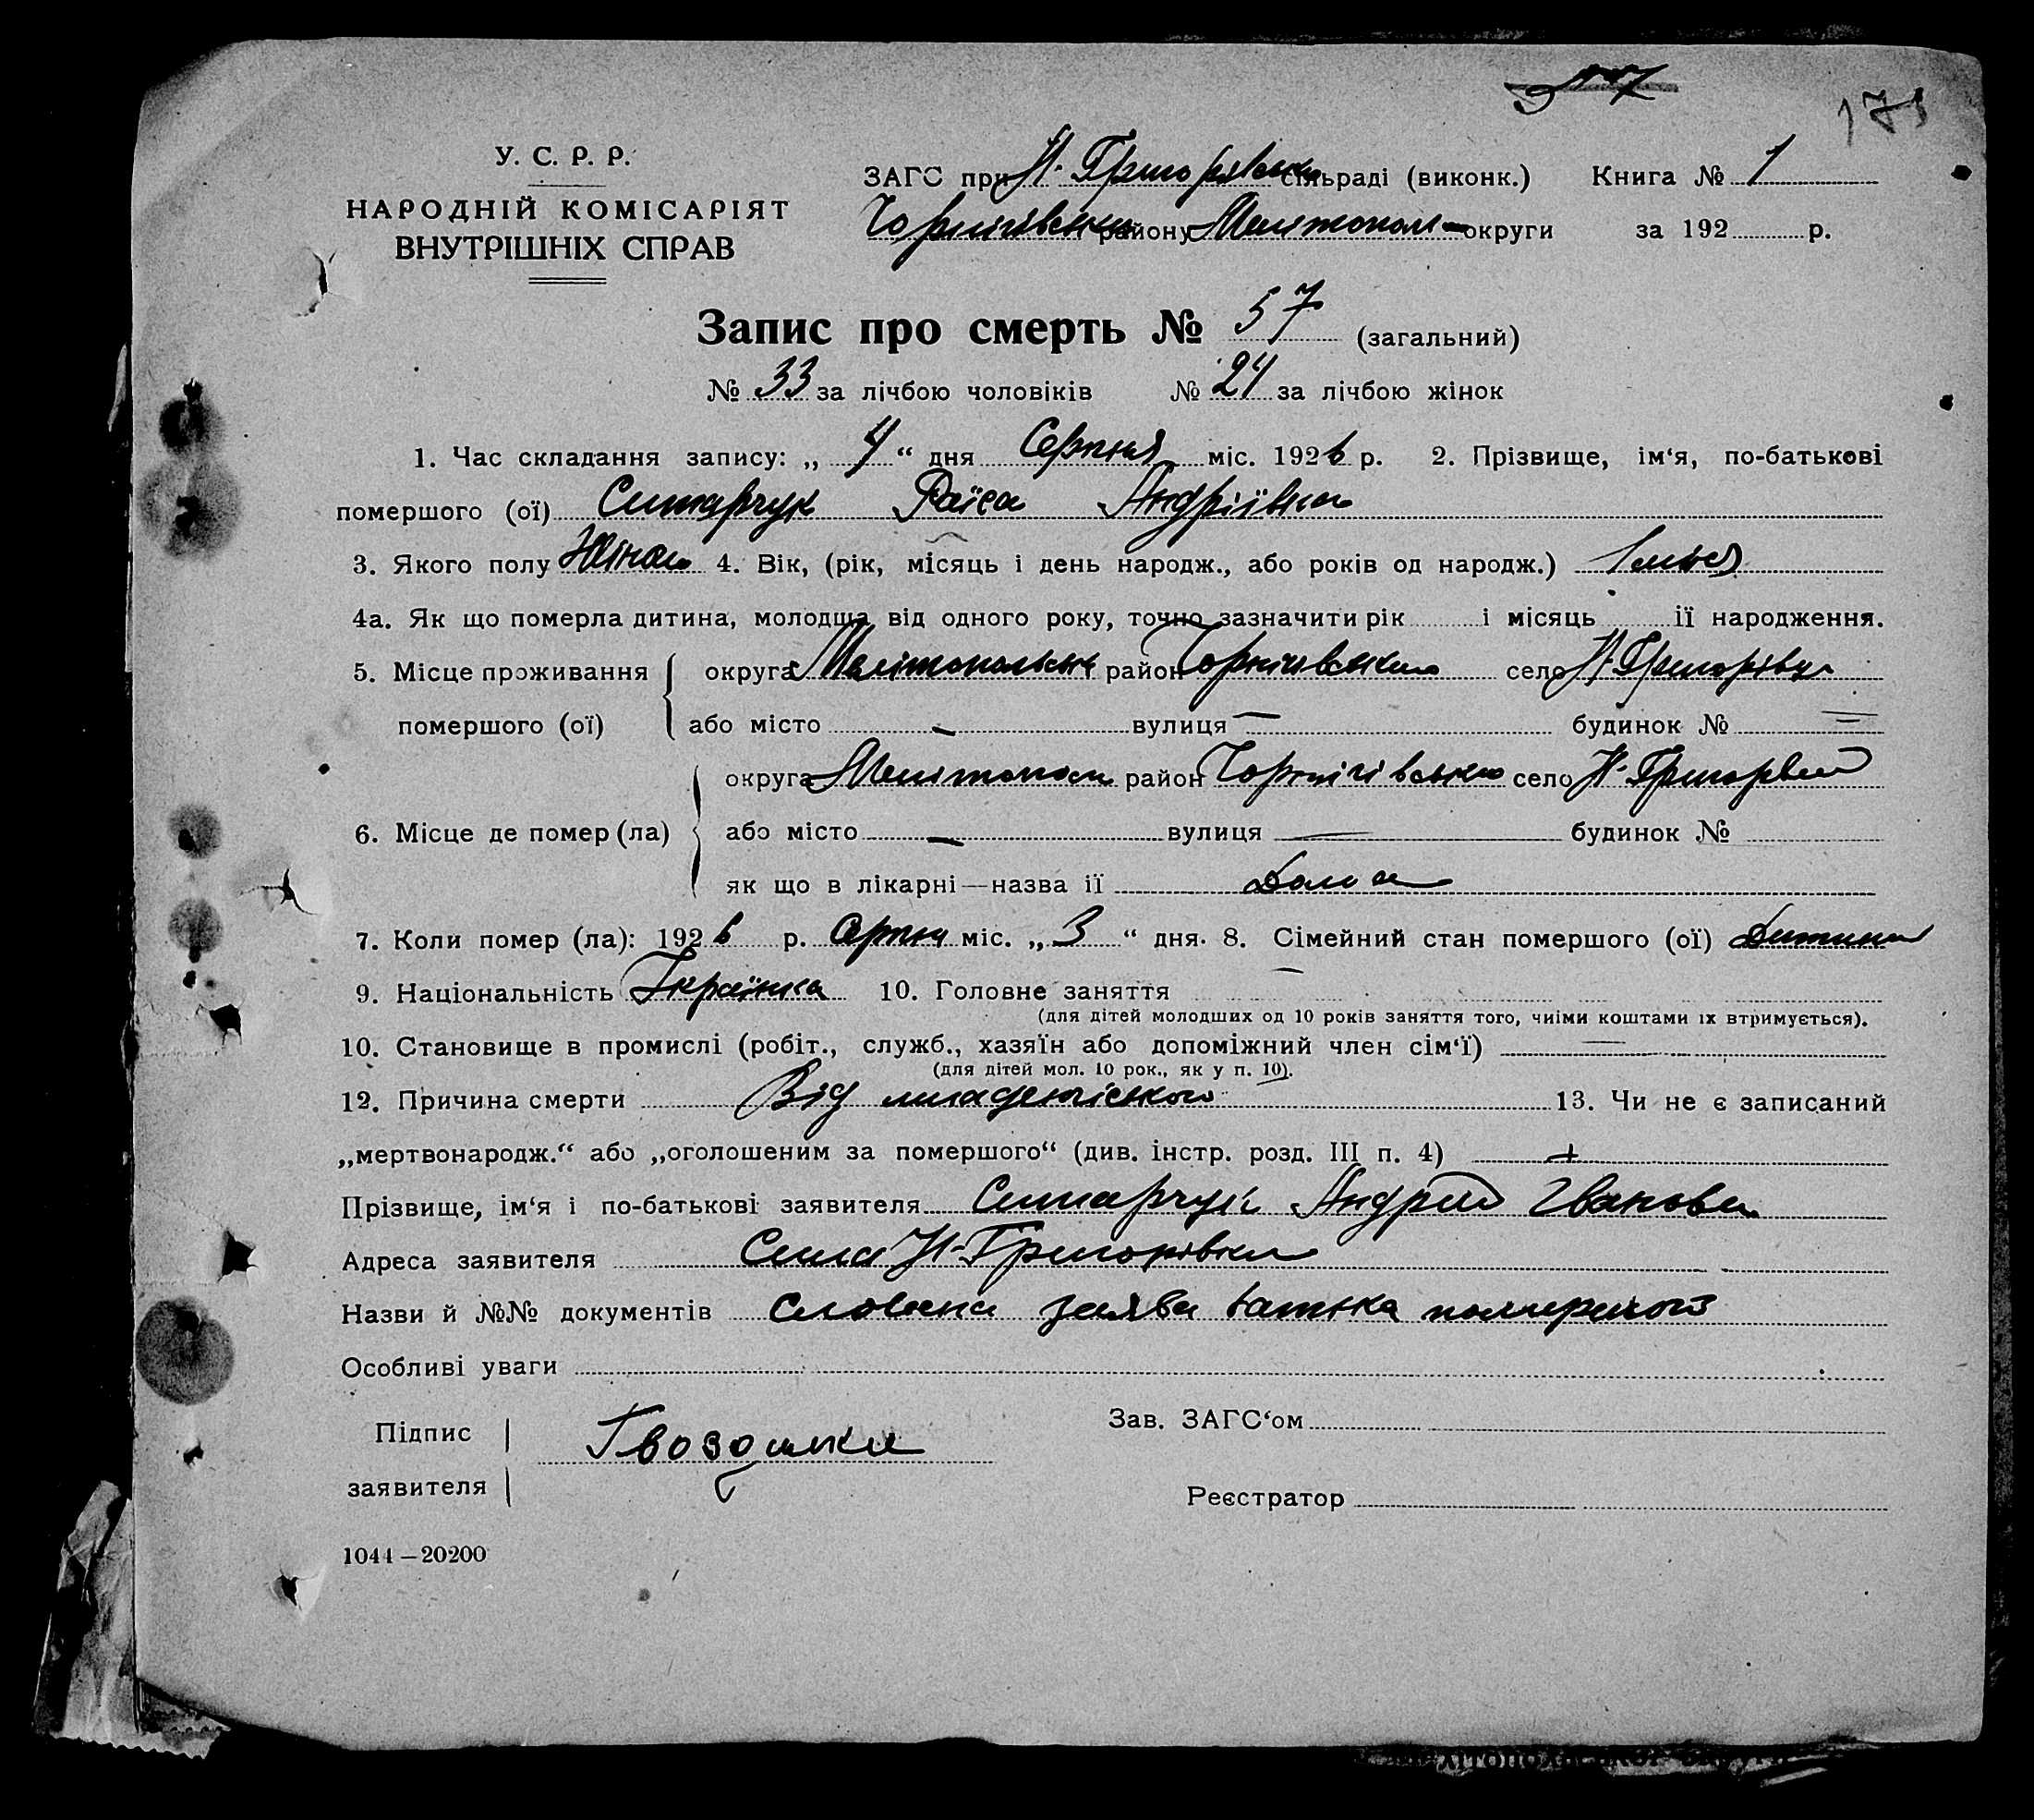 171
У. С. Р. Р.
НАРОДНІЙ КОМІСАРІЯТ
ВНУТРІШНІХ СПРАВ
ЗАГС при Н-Григорівськ сільраді (виконк.) Книга № 1
Чорнігівськ району Мелітопол- округи за 192 р.
Запис про смерть № 57 (загальний)
№ 33 за лічбою чоловіків № 24 за лічбою жінок
1. Час складання запису: „ 4 “ дня Серпня міс. 1926 р. 2. Прізвище, ім‘я, по-батькові
помершого (ої) Ситарчук Раїса Андріївна
3. Якого полу Жіноч 4. Вік, (рік, місяць і день народж., або років од народж.) 1
4а. Як що померла дитина, молодща від одного року, точно зазначити рік і місяць її народження.
5. Місце проживання округа Мелітопольськ район Чорнігівськ село Н-Григорівц
помершого (ої) або місто — вулиця — будинок № =
округа Мелітополь район Чорнігівсько село Н-Григорівці
6. Місце де помер (ла) або місто — вулиця — будинок №
як що в лікарні—назва її Дома
7. Коли помер (ла): 1926 р. Серпня міс. „ 3 “ дня. 8. Сімейний стан помершого (ої) Дитина
9. Національність Українка 10. Головне заняття —
(для дітей молодших од 10 років заняття того, чиіми коштами їх втримується).
10. Становище в промислі (робіт., служб., хазяїн або допоміжний член сім‘ї) —
(для дітей мол. 10 рок., як у п. 10).
12. Причина смерти Від младенчіського 13. Чи не є записаний
„мертвонародж.“ або „оголошеним за помершого“ (див. інстр. розд. III п. 4) +
Прізвище, ім‘я і по-батькові заявителя Ситарчук Андрій Іванови
Адреса заявителя Села Н-Григорівки
Назви й №№ документів Словена заява батька помершого
Особливі уваги
Підпис Зав. ЗАГС‘ом
заявителя Реєстратор
1044—20200